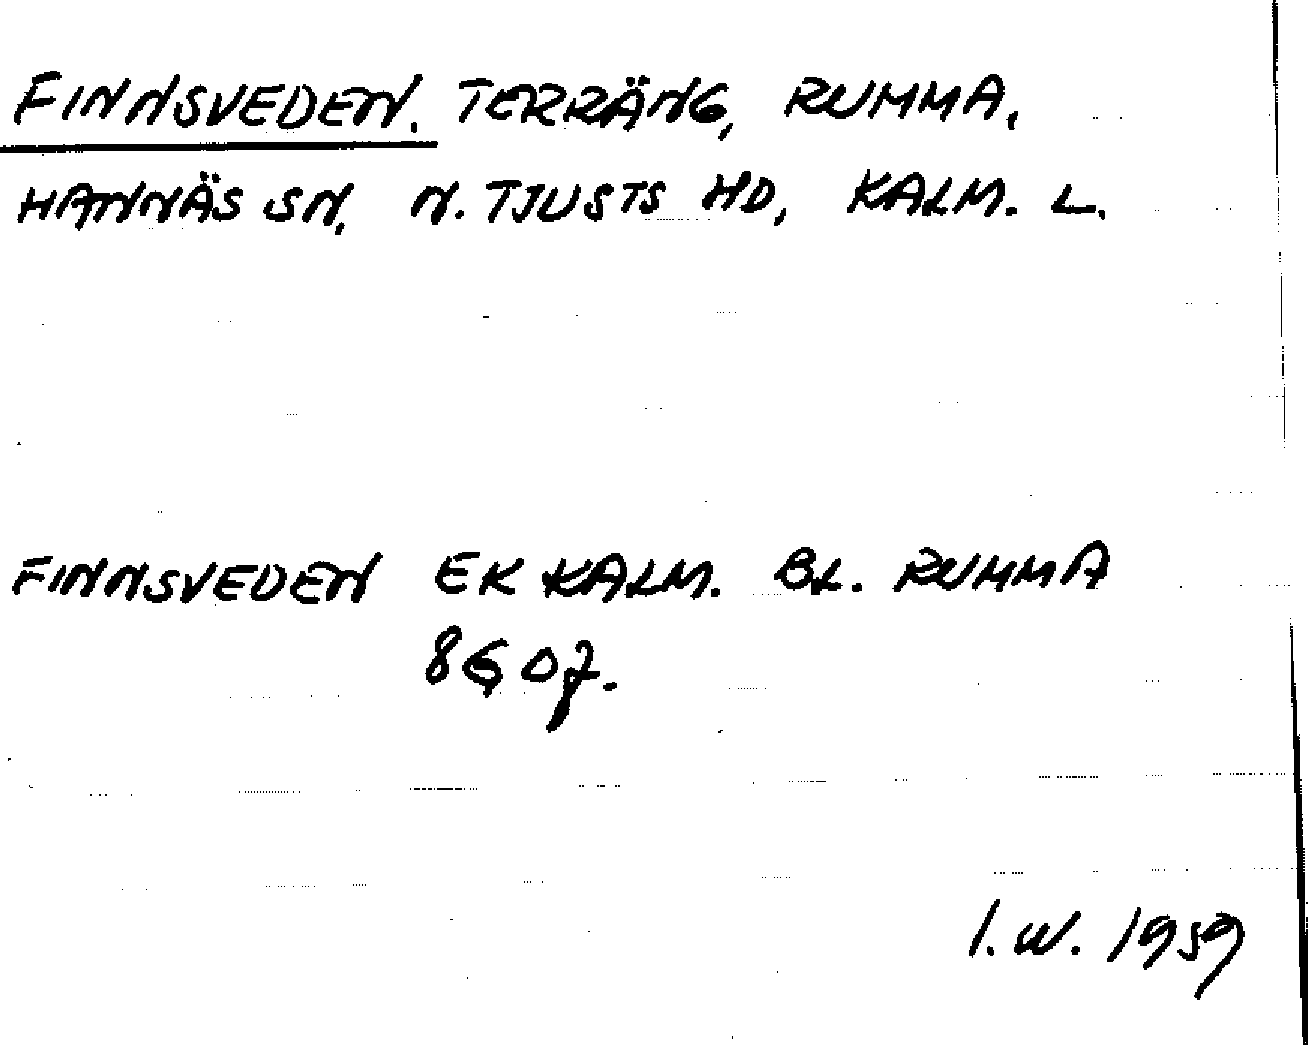 FINNSVEDEN. TERRÄNG, RUMMA,
HANNÄS SN, N. TJUSTS HD, KALM. L.
FINNSVEDEN EK KALM. BL. RUMMA
8G 07.
I.W. 1959